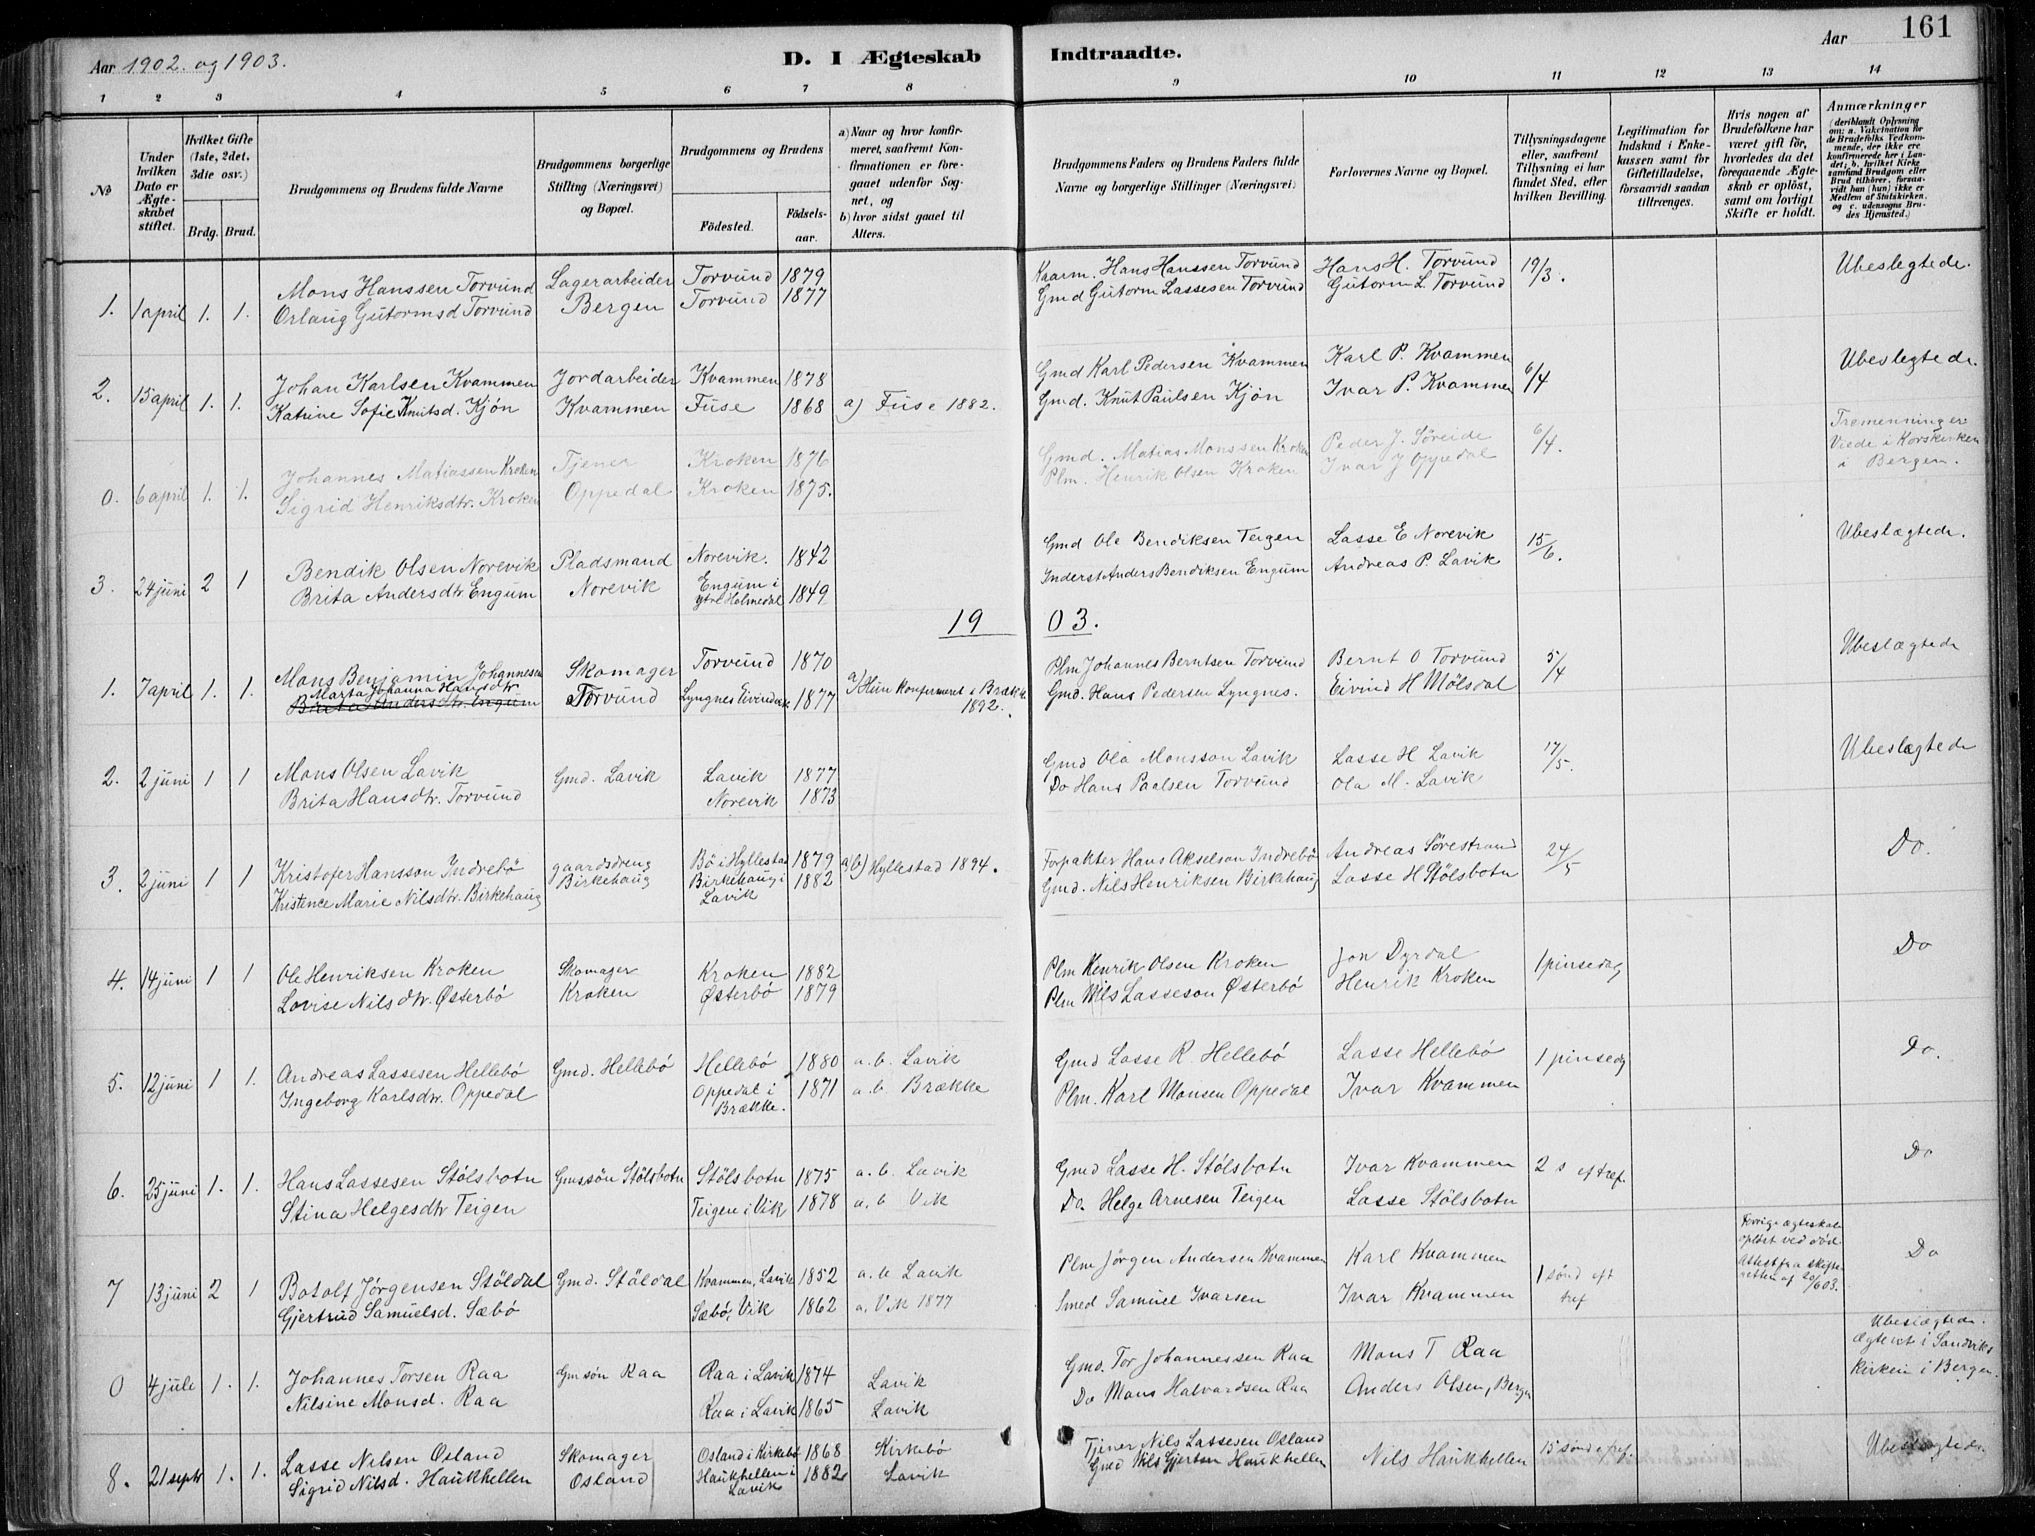 Aar 1902. og 1903.
D. I Ægteskab Indtraadte.
Aar
161
1 2 3 4 5 6 7 8 9 10 11 12 13 14
No
Under hvilken Dato er Ægteskabet stiftet.
Hvilket Gifte (1ste, 2det, 3die osv.)
Brdg. Brud.
Brudgommens og Brudens fulde Navne
Brudgommens borgerlige Stilling (Næringsvei) og Bopæl.
Brudgommens og Brudens
Födested. Födselsaar.
a) Naar og hvor konfirmeret, saafremt Konfirmationen er foregaaet udenfor Sognet, og
b) hvor sidst gaaet til Alters.
Brudgommens Faders og Brudens Faders fulde Navne og borgerlige Stillinger (Næringsvei)
Forlovernes Navne og Bopæl.
Tillysningsdagene eller, saafremt Tillysning ei har fundet Sted, efter hvilken Bevilling.
Legitimation for Indskud i Enkekassen samt for Giftetilladelse, forsaavidt saadan tiltrænges.
Hvis nogen af Brudefolkene har været gift før, hvorledes da det foregaaende Ægteskab er oplöst, samt om lovligt Skifte er holdt.
Anmærkninger (deriblandt Oplysning om: a. Vakcination for de Brudefolks Vedkommende, der ikke ere konfirmerede her i Landet; b. hvilket Kirkesamfund Brudgom eller Brud tilhörer, forsaavidt han (hun) ikke er Medlem af Statskirken, og c. udensogns Brudes Hjemsted.)
1. 1 april 1. 1. Mons Hanssen Torvund Lagerarbeider Torvund 1879 Kaarm. Hans Hanssen Torvund Hans H. Torvund 19/3. Ubeslegtede.
Orlaug Gutormsd Torvund Bergen Torvund 1877 Gmd Gutorm Lassesen Torvund Gutorm L Torvund
2. 15 april 1. 1. Johan Karlsen Kvammen Jordarbeider Kvammen 1878 Gmd Karl Pedersen Kvammen Karl P. Kvammen 6/4 Ubeslegtede.
Katrine Sofie Knutsd. Kjøn Kvammen Fuse 1868 a) Fuse 1882. Gmd. Knut Paulsen Kjön Ivar P. Kvammen
0. 6 april 1. 1. Johannes Matiassen Kroken Tjener Kroken 1876 Gmd. Matias Monssen Kroken Peder J. Søreide 6/4. Tremenninger
Sigrid Henriksdtr. Kroken Oppedal Kroken 1875. Plm. Henrik Olsen Kroken Ivar J Oppedal Viede i Korskirken
i Bergen.
3. 24 juni 2 1 Bendik Olsen Norevik Pladsmand Norevik. 1842 Gmd Ole Bendiksen Teigen Lasse E Norevik 15/6. Ubeslægtede.
Brita Andersdtr Engum Norevik Engum i ytre Holmedal 1849 Inderst Anders Bendiksen Engum Andreas P. Lavik
19 03.
1. 7 april 1. 1. Mons Benjamin Johannesen Skomager Torvund 1870 Plm Johannes Berntsen Torvund Bernt O Torvund 5/4 Ubeslægtede
Marta Johanna Hansdtr
Brita Andersdtr. Engum Torvund Lyngnes Eivindvik 1877 a) Hun konfirmeret i Brække 1892. Gmd. Hans Pedersen Lyngnes. Eivind H Mölsdal
2. 2 juni 1 1 Mons Olsen Lavik Gmd. Lavik Lavik 1877 Gmd Ola Monsson Lavik Lasse H Lavik 17/5. Ubeslægtede
Brita Hansdtr. Torvund Norevik 1873 Do Hans Paalsen Torvund Ola M. Lavik
3. 2 juni 1 1 Kristofer Hansson Indrebö gaardsdreng Bö i Hyllestad 1879 a) b) Hyllestad 1894. Forpakter Hans Akselson Indrebö Andreas Sørestrand 24/5 Do.
Kristence Marie Nilsdtr. Birkehaug Birkehaug Birkehaug i Lavik 1882 Gmd. Nils Henriksen Birkehaug Lasse H Stölsbotn
4. 14 juni 1 1 Ole Henriksen Kroken Skomager Kroken 1882 Plm Henrik Olsen Kroken Jon Dyrdal 1 pinsedag Do
Lovise Nilsdtr. Østerbö Kroken Østerbö 1879 Plm Nils Lasseson Østerbö Henrik Kroken
5. 12 juni 1 1. Andreas Lassesen Hellebö Gmd. Hellebö Hellebö 1880 a. b. Lavik Gmd Lasse R. Hellebö Lasse Hellebö 1 pinsedg Do.
Ingeborg Karlsdtr. Oppedal Oppedal i Brække. 1871 a. b. Brække Plm. Karl Monsen Oppedal Ivar Kvammen
6. 25 juni 1. 1. Hans Lassesen Stölsbotn Gmssön Stölsbotn Stölsbotn 1875 a. b. Lavik Gmd Lasse H. Stölsbotn Ivar Kvammen 2 s eftref. Do
Stina Helgesdtr Teigen Teigen i Vik 1878 a. b Vik Do. Helge Arnesen Teigen Lasse Stölsbotn
7 13 juni 2 1 Botolf Jörgensen Stöldal Gmd. Stöldal Kvammen, Lavik 1852 a. b Lavik Plm Jörgen Andersen Kvammen Karl Kvammen 1 sönd eft tref Forrige ægteskab oplöst ved död. Attest fra skifteretten af 20/6 03. Do
Gjertrud Samuelsd. Sæbö Sæbö, Vik 1862 a. Vik 1877 Smed Samuel Ivarsen Ivar Kvammen
0 4 jule 1. 1. Johannes Torsen Raa Gmsön Raa Raa i Lavik 1874 Lavik Gmd. Tor Johannessen Raa Mons T Raa Ubeslægtede.
Nilsine Monsd. Raa Raa i Lavik 1865 Lavik Do Mons Halvardsen Raa Anders Olsen, Bergen ægteviet i Sandvikskirken i Bergen.
8. 21 septr 1. 1. Lasse Nilsen Osland Skomager Osland i Kirkebö 1868 Kirkebö Tjener Nils Lassesen Osland Nils Haukhellen 15 sönd e tref. Ubeslægtede
Sigrid Nilsd. Haukhellen Osland Haukhellen i Lavik 1882 Lavik Gmd Nils Gjertsen Haukhellen